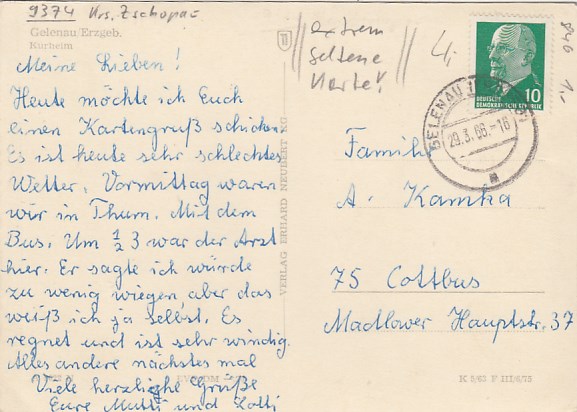 9374 Krs. Zschopau
Gelenau/Erzgeb.
Kurheim
Meine Lieben!
Heute möchte ich Euch
einen Kartengruß schicken.
Es ist heute sehr schlechtes
Wetter. Vormittag waren
wir in Thum. Mit dem
Bus. Um 1/2 3 war der Arzt
hier. Er sagte ich würde
zu wenig wiegen, aber das
weiß ich ja selbst. Es
regnet und ist sehr windig.
Alles andere nächstes mal
Viele herzliche Grüße
Eure Mutti und Lotti
VERLAG ERHARD NEUBERT
extrem
seltene
Karte!
4,-
1.-
10
DEUTSCHE
DEMOKRATISCHE REPUBLIK
GELENAU
29.3.66.-16
Familie
A. Kamka
75 Cottbus
Madlower Hauptstr. 37
K 5/63 F III/6/75